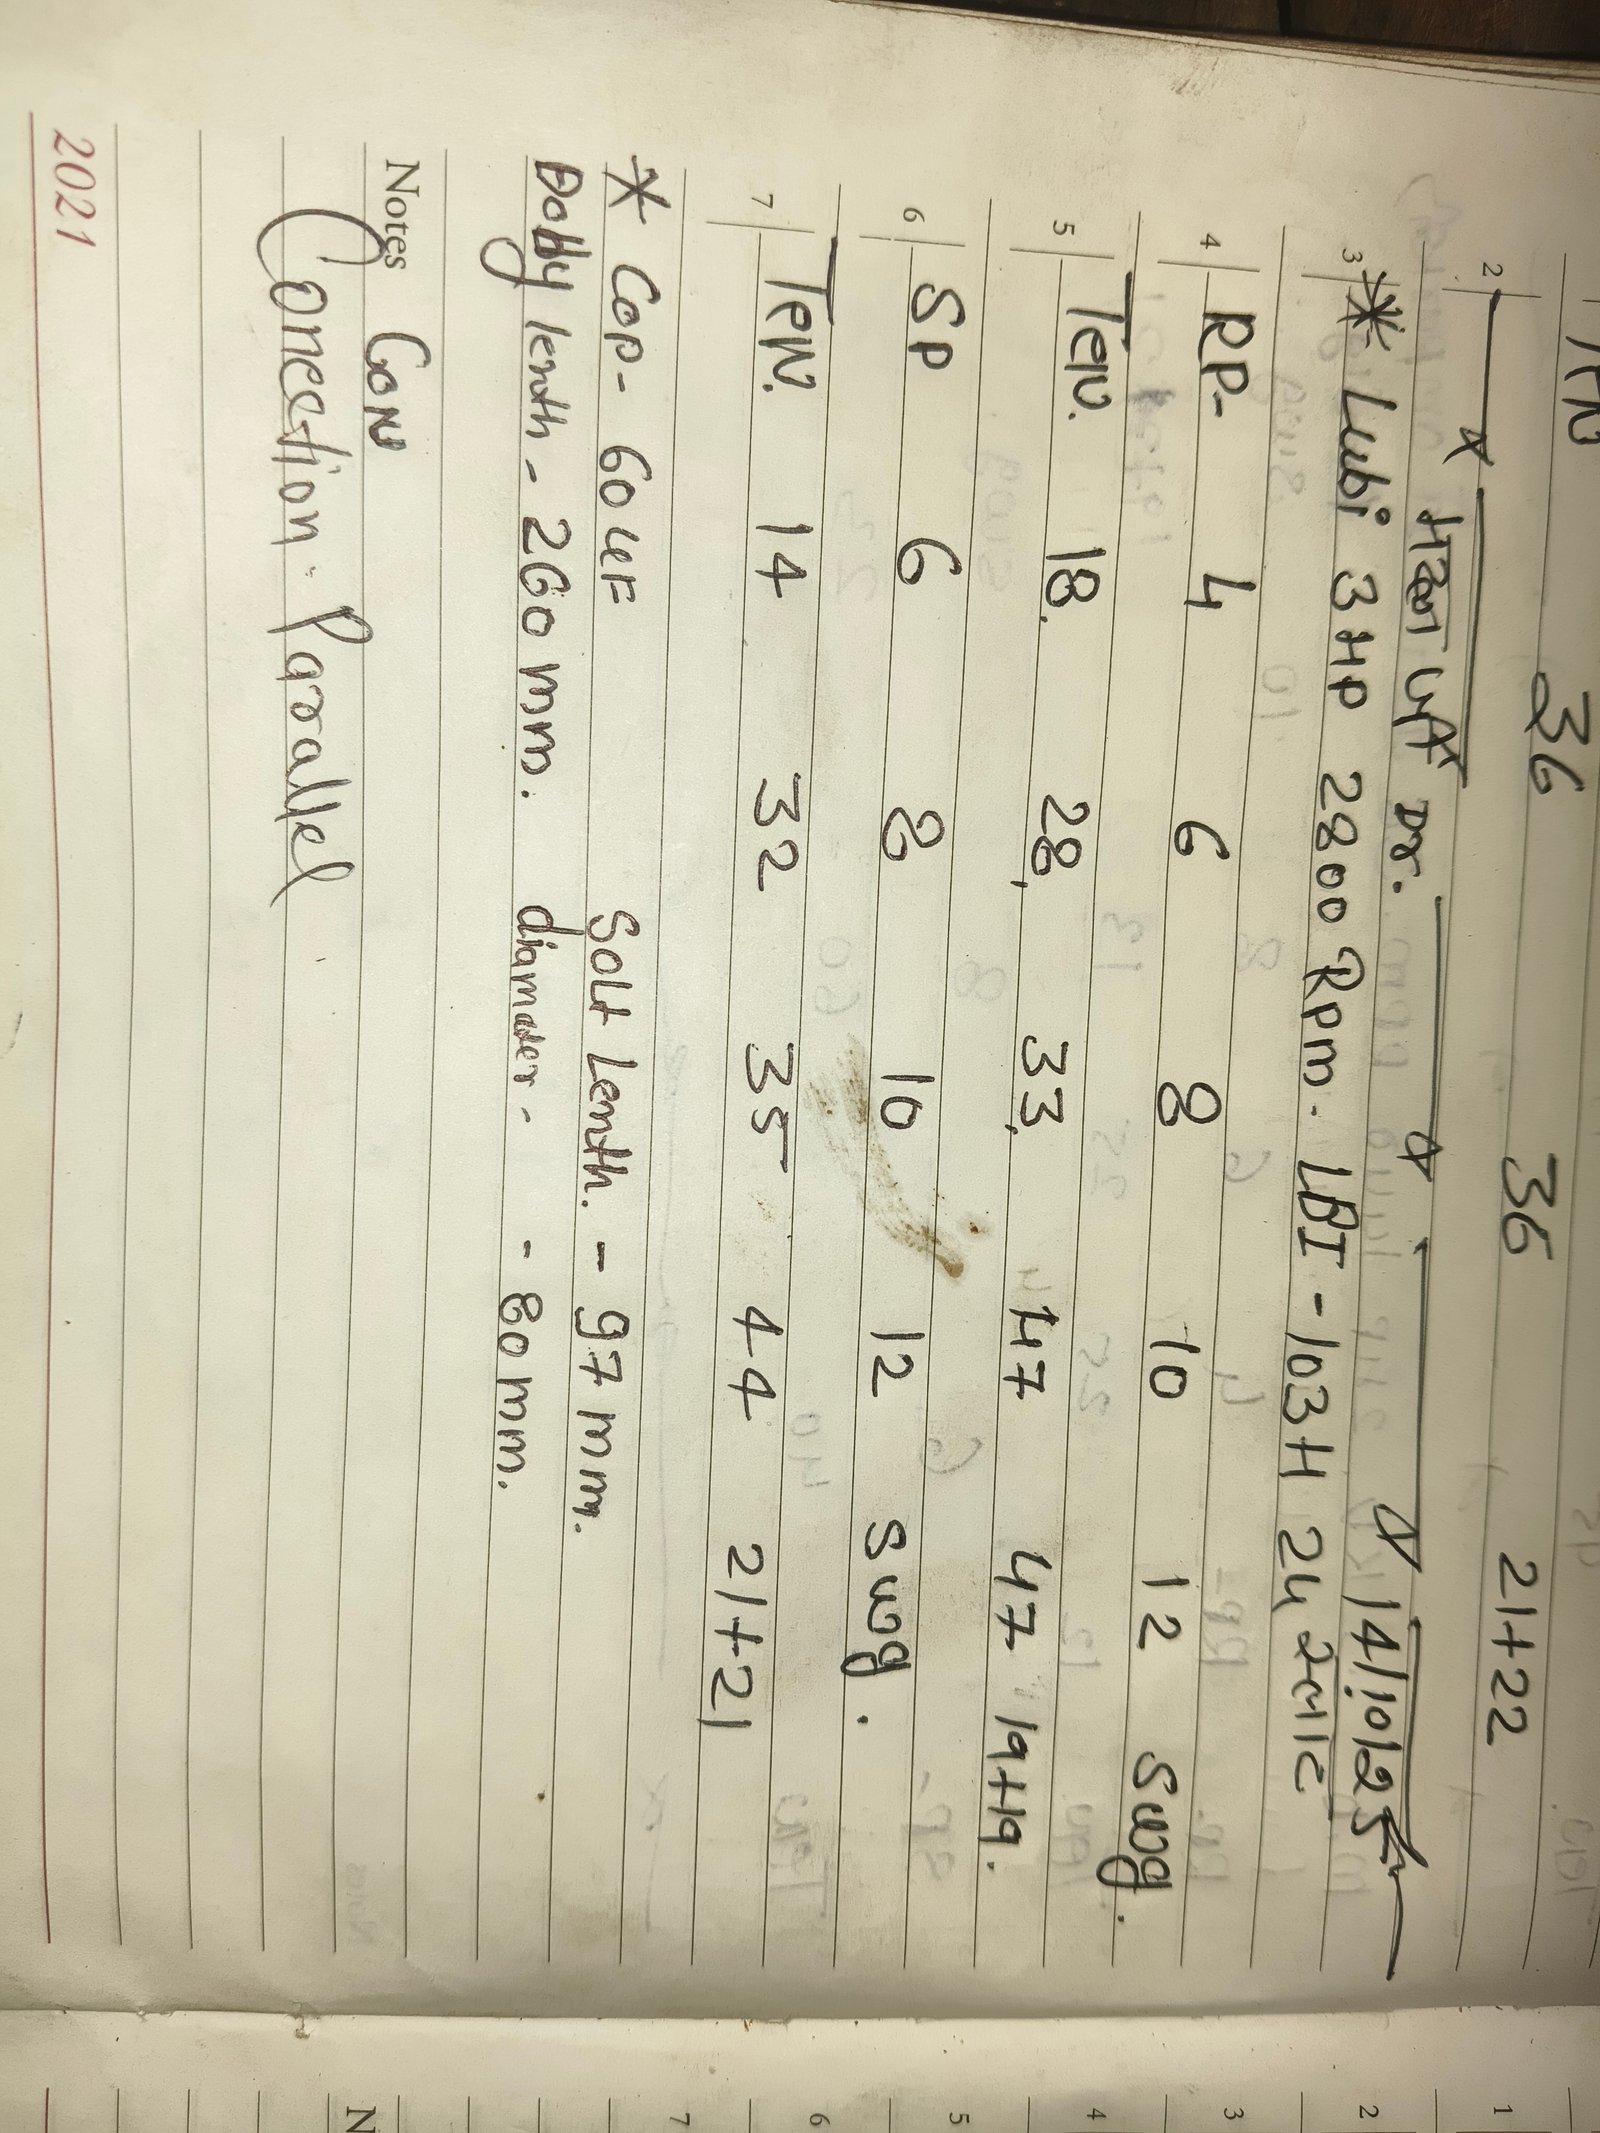 TEN 36 36 21+22
2
Dr. 14/10/25
3 * Lubi 3 HP 2800 Rpm. LBI - 103H 24
4 RP- 4 6 8 10 12 Swg.
5 TEN. 18. 28, 33, 47 47 19+19.
6 SP 6 8 10 12 Swg.
7 TEN. 14 32 35 44 21+21
* Cap- 60 uF Solt Lenth. - 97 mm.
Dolly lenth - 260 mm. diamater - - 80 mm.
Notes CON
Conection. Parallel
2021
1
2
3
4
5
6
7
N